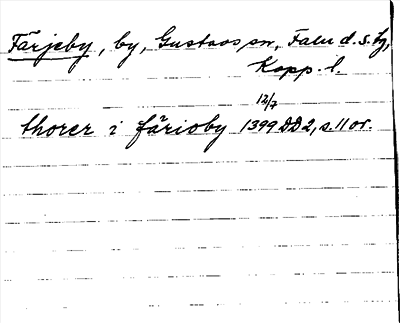 Färjeby, by, Gustavs sn, Falu d. s. lg,
Kopp. l.
12/7
thorer i färioby 1399 DD 2, s. 11 or.